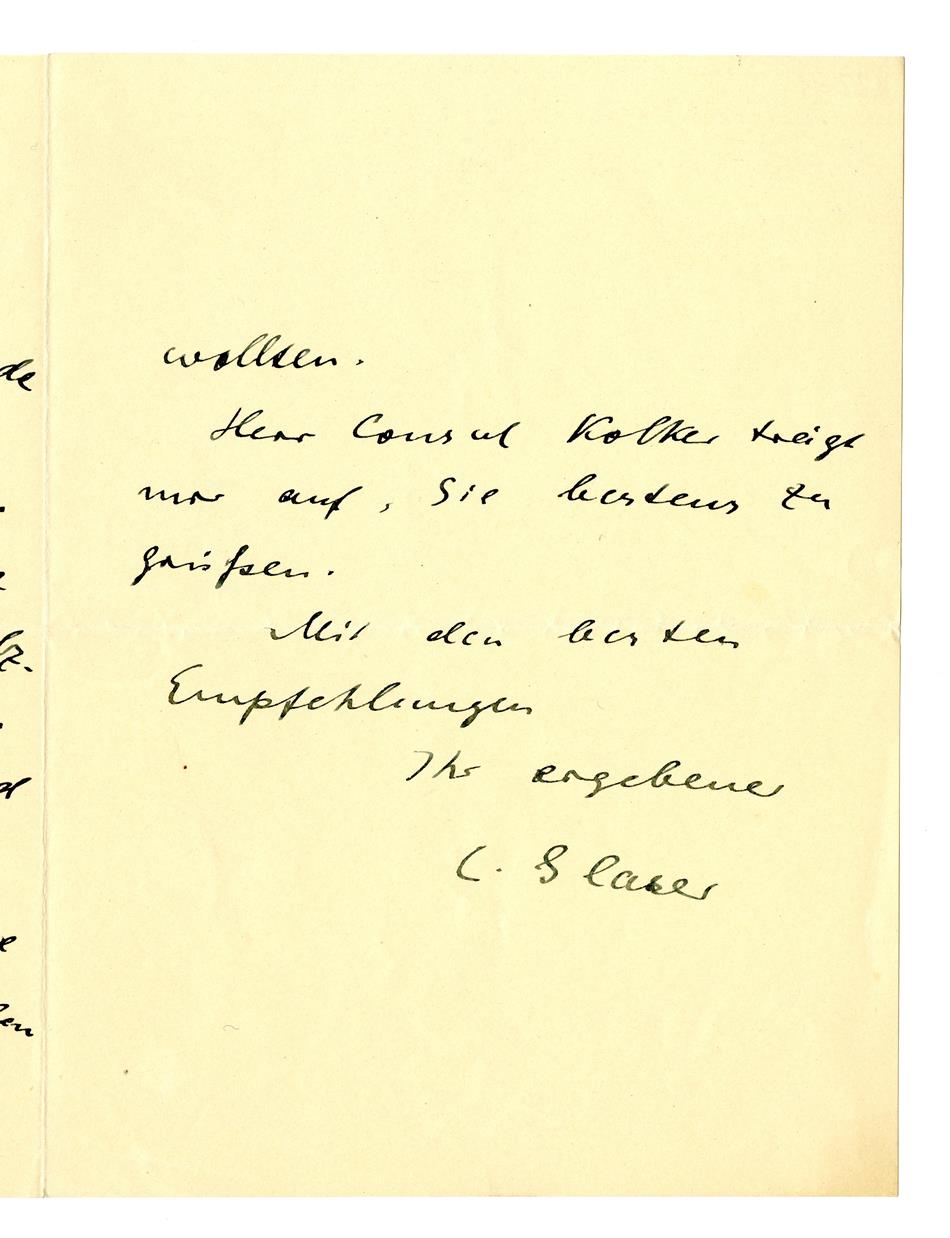 wollten.
Herr Consul Kolker trägt
mir auf, Sie bestens zu
grüßen.
Mit den besten
Empfehlungen
Ihr ergebener
C. Glaser